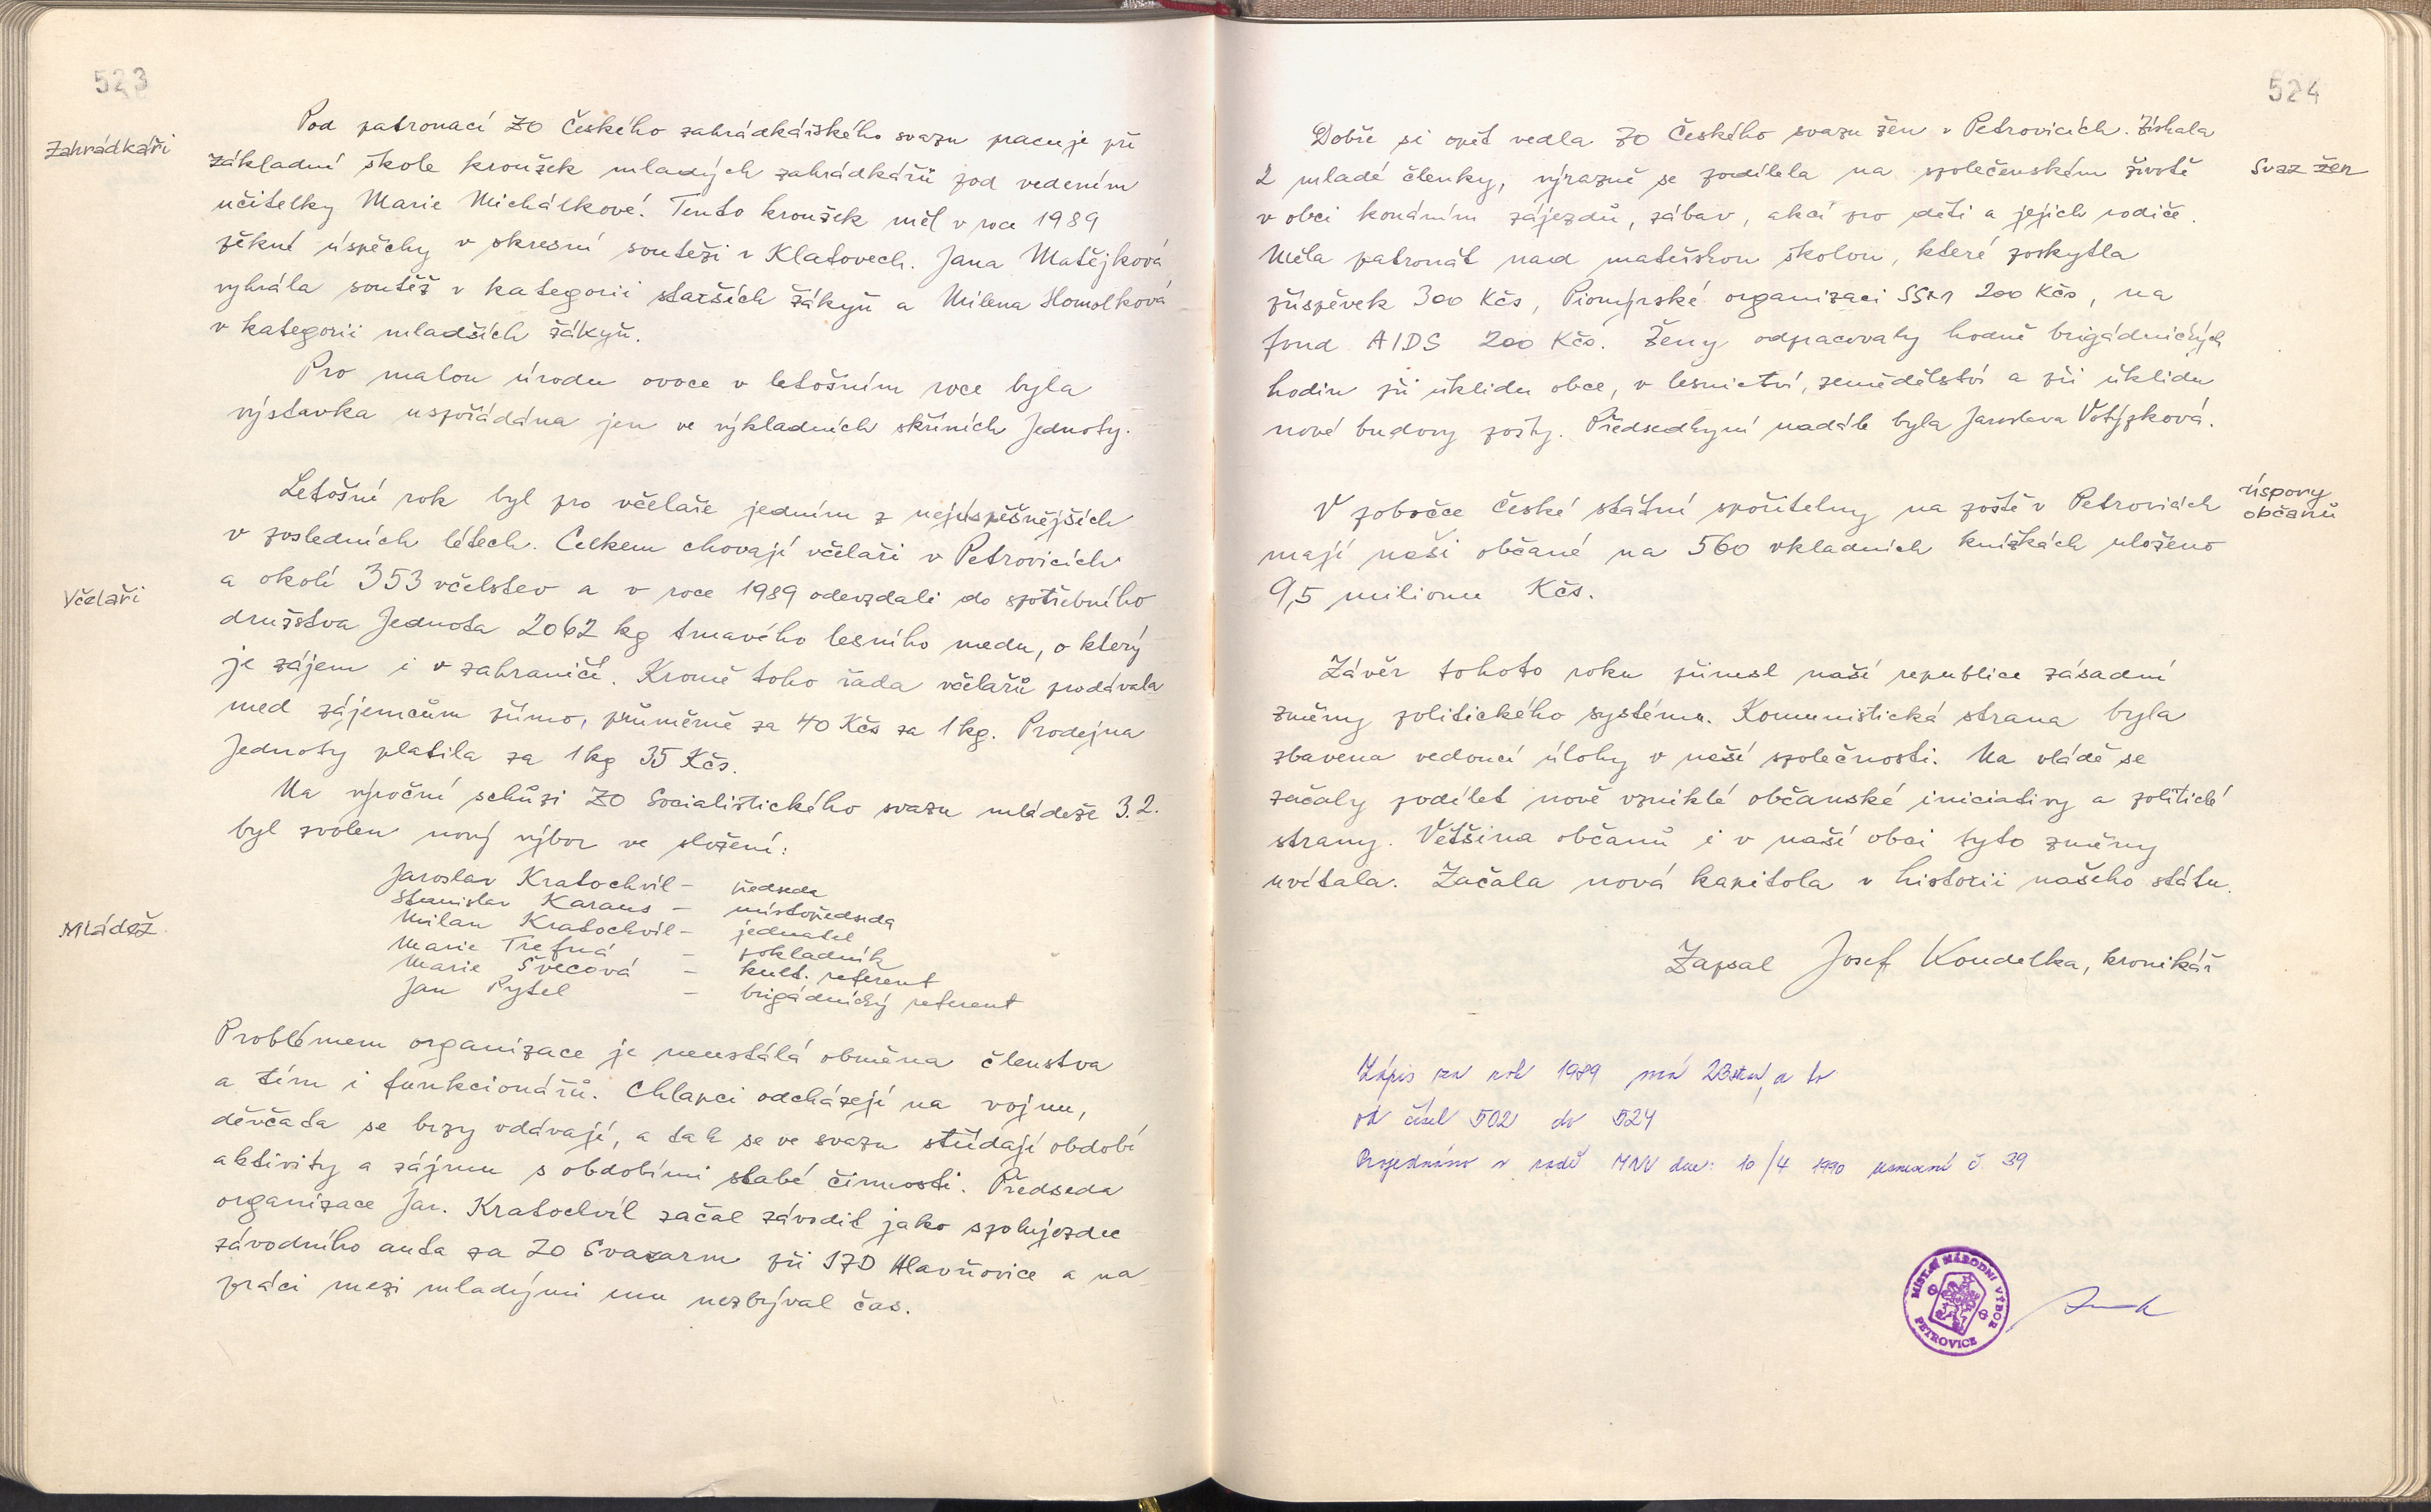 523
Zahrádkáři
Pod patronací ZO Českého zahrádkářského svazu pracuje při
základní škole kroužek mladých zahrádkářů pod vedením
učitelky Marie Michálkové. Tento kroužek měl v roce 1989
pěkné úspěchy v okresní soutěži v Klatovech. Jana Matějková
vyhrála soutěž v kategorii starších žákyň a Milena Homolková
v kategorii mladších žákyň.
Pro malou úrodu ovoce v letošním roce byla
výstavka uspořádána jen ve výkladních skříních Jednoty.
Letošní rok byl pro včelaře jedním z nejúspěšnějších
v posledních létech. Celkem chovají včelaři v Petrovicích
Včelaři
a okolí 353 včelstev a v roce 1989 odevzdali do spotřebního
družstva Jednota 2062 kg tmavého lesního medu, o který
je zájem i v zahraničí. Kromě toho řada včelařů prodávala
med zájemcům přímo, průměrně za 40 Kčs za 1 kg. Prodejna
Jednoty platila za 1 kg 35 Kčs.
Na výroční schůzi ZO Socialistického svazu mládeže 3.2.
byl zvolen nový výbor ve složení:
Mládež
Jaroslav Kratochvíl - předseda
Stanislav Karaus - místopředseda
Milan Kratochvíl - jednatel
Marie Trefná - pokladník
Marie Švecová - kult. referent
Jan Pytel - brigádnický referent
Problémem organizace je neustálá obměna členstva
a tím i funkcionářů. Chlapci odcházejí na vojnu,
děvčata se brzy vdávají, a tak se ve svazu střídají období
aktivity a zájmu s obdobími slabé činnosti. Předseda
organizace Jar. Kratochvíl začal závodit jako spolujezdec
závodního auta za ZO Svazarm při JZD Hlavňovice a na
práci mezi mladými mu nezbýval čas.
524
Dobře si opět vedla ZO Českého svazu žen v Petrovicích. Získala
Svaz žen
2 mladé členky, výrazně se podílela na společenském životě
v obci konáním zájezdů, zábav, akcí pro děti a jejich rodiče.
Měla patronát nad mateřskou školou, které poskytla
příspěvek 300 Kčs, Pionýrské organizaci SSM 200 Kčs, na
fond AIDS 200 Kčs. Ženy odpracovaly hodně brigádnických
hodin při úklidu obce, v lesnictví, zemědělství a při úklidu
nové budovy pošty. Předsedkyní nadále byla Jaroslava Votýpková.
úspory
občanů
V pobočce České státní spořitelny na poště v Petrovicích
mají naši občané na 560 vkladních knížkách uloženo
9,5 milionu Kčs.
Závěr tohoto roku přinesl naší republice zásadní
změny politického systému. Komunistická strana byla
zbavena vedoucí úlohy v naší společnosti. Na vládě se
začaly podílet nově vzniklé občanské iniciativy a politické
strany. Většina občanů i v naší obci tyto změny
uvítala. Začala nová kapitola v historii našeho státu.
Zapsal Josef Koudelka, kronikář
Zápis za rok 1989 má 23 stran, a to
od čísel 502 do 524
Projednáno v radě MNV dne: 10/4 1990 usnesení č. 39
MÍSTNÍ NÁRODNÍ VÝBOR
PETROVICE